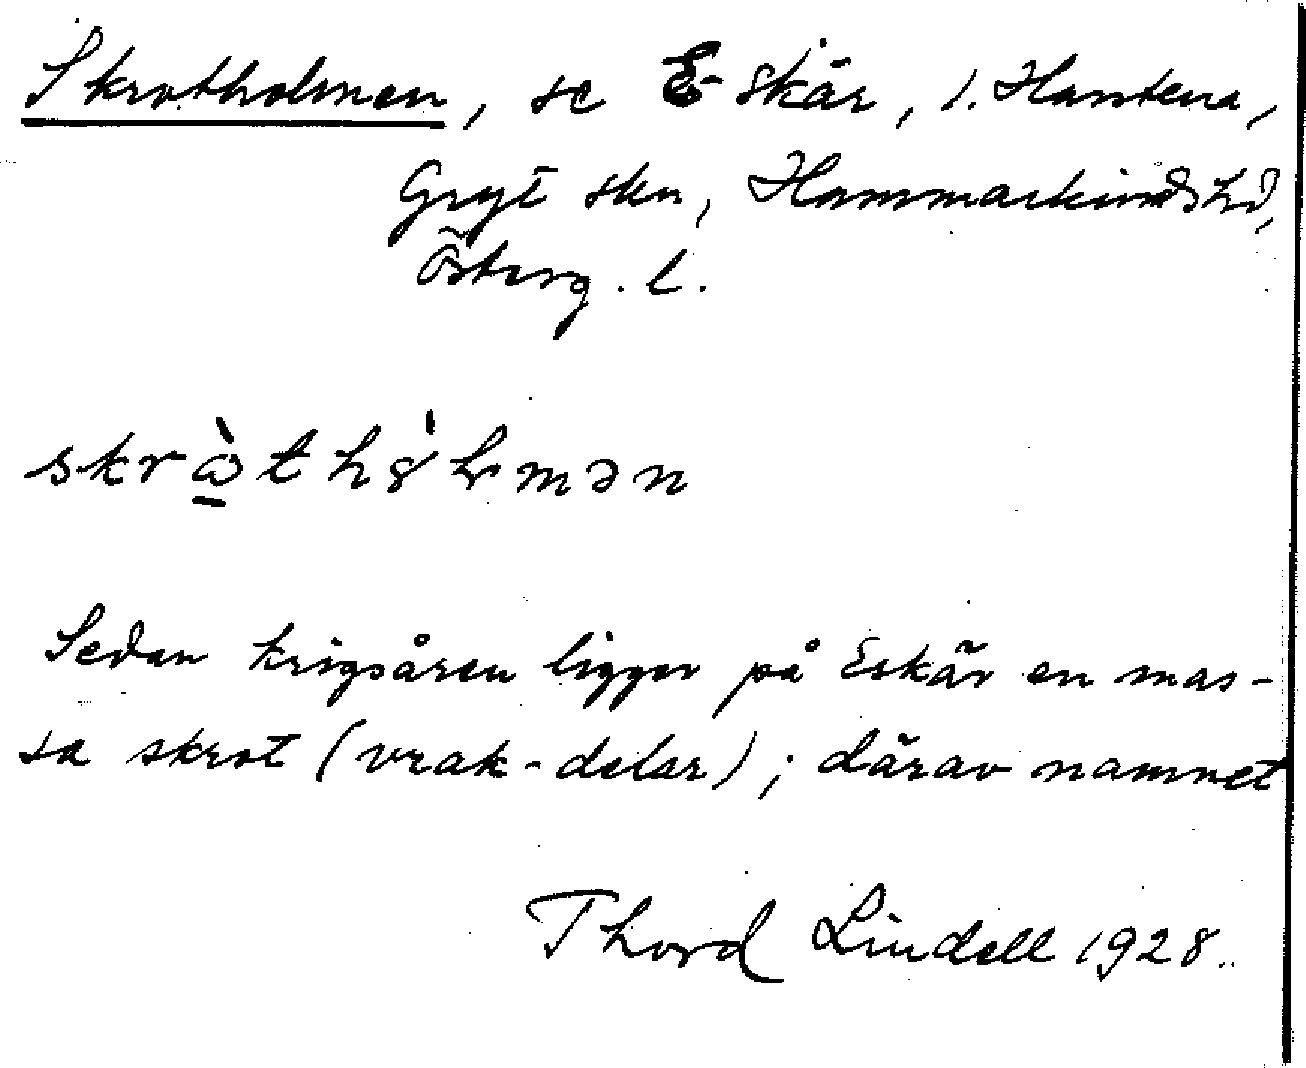 Skrotholmen, se E-skär, i. Hamtena,
Gryt skn, Hammarkindshd,
Österg. l.
skrὼthȣ̀ɫmən
Sedan krigsåren ligger på Eskär en mas-
sa skrot (vrak-delar); därav namnet
Thord Lindell 1928.